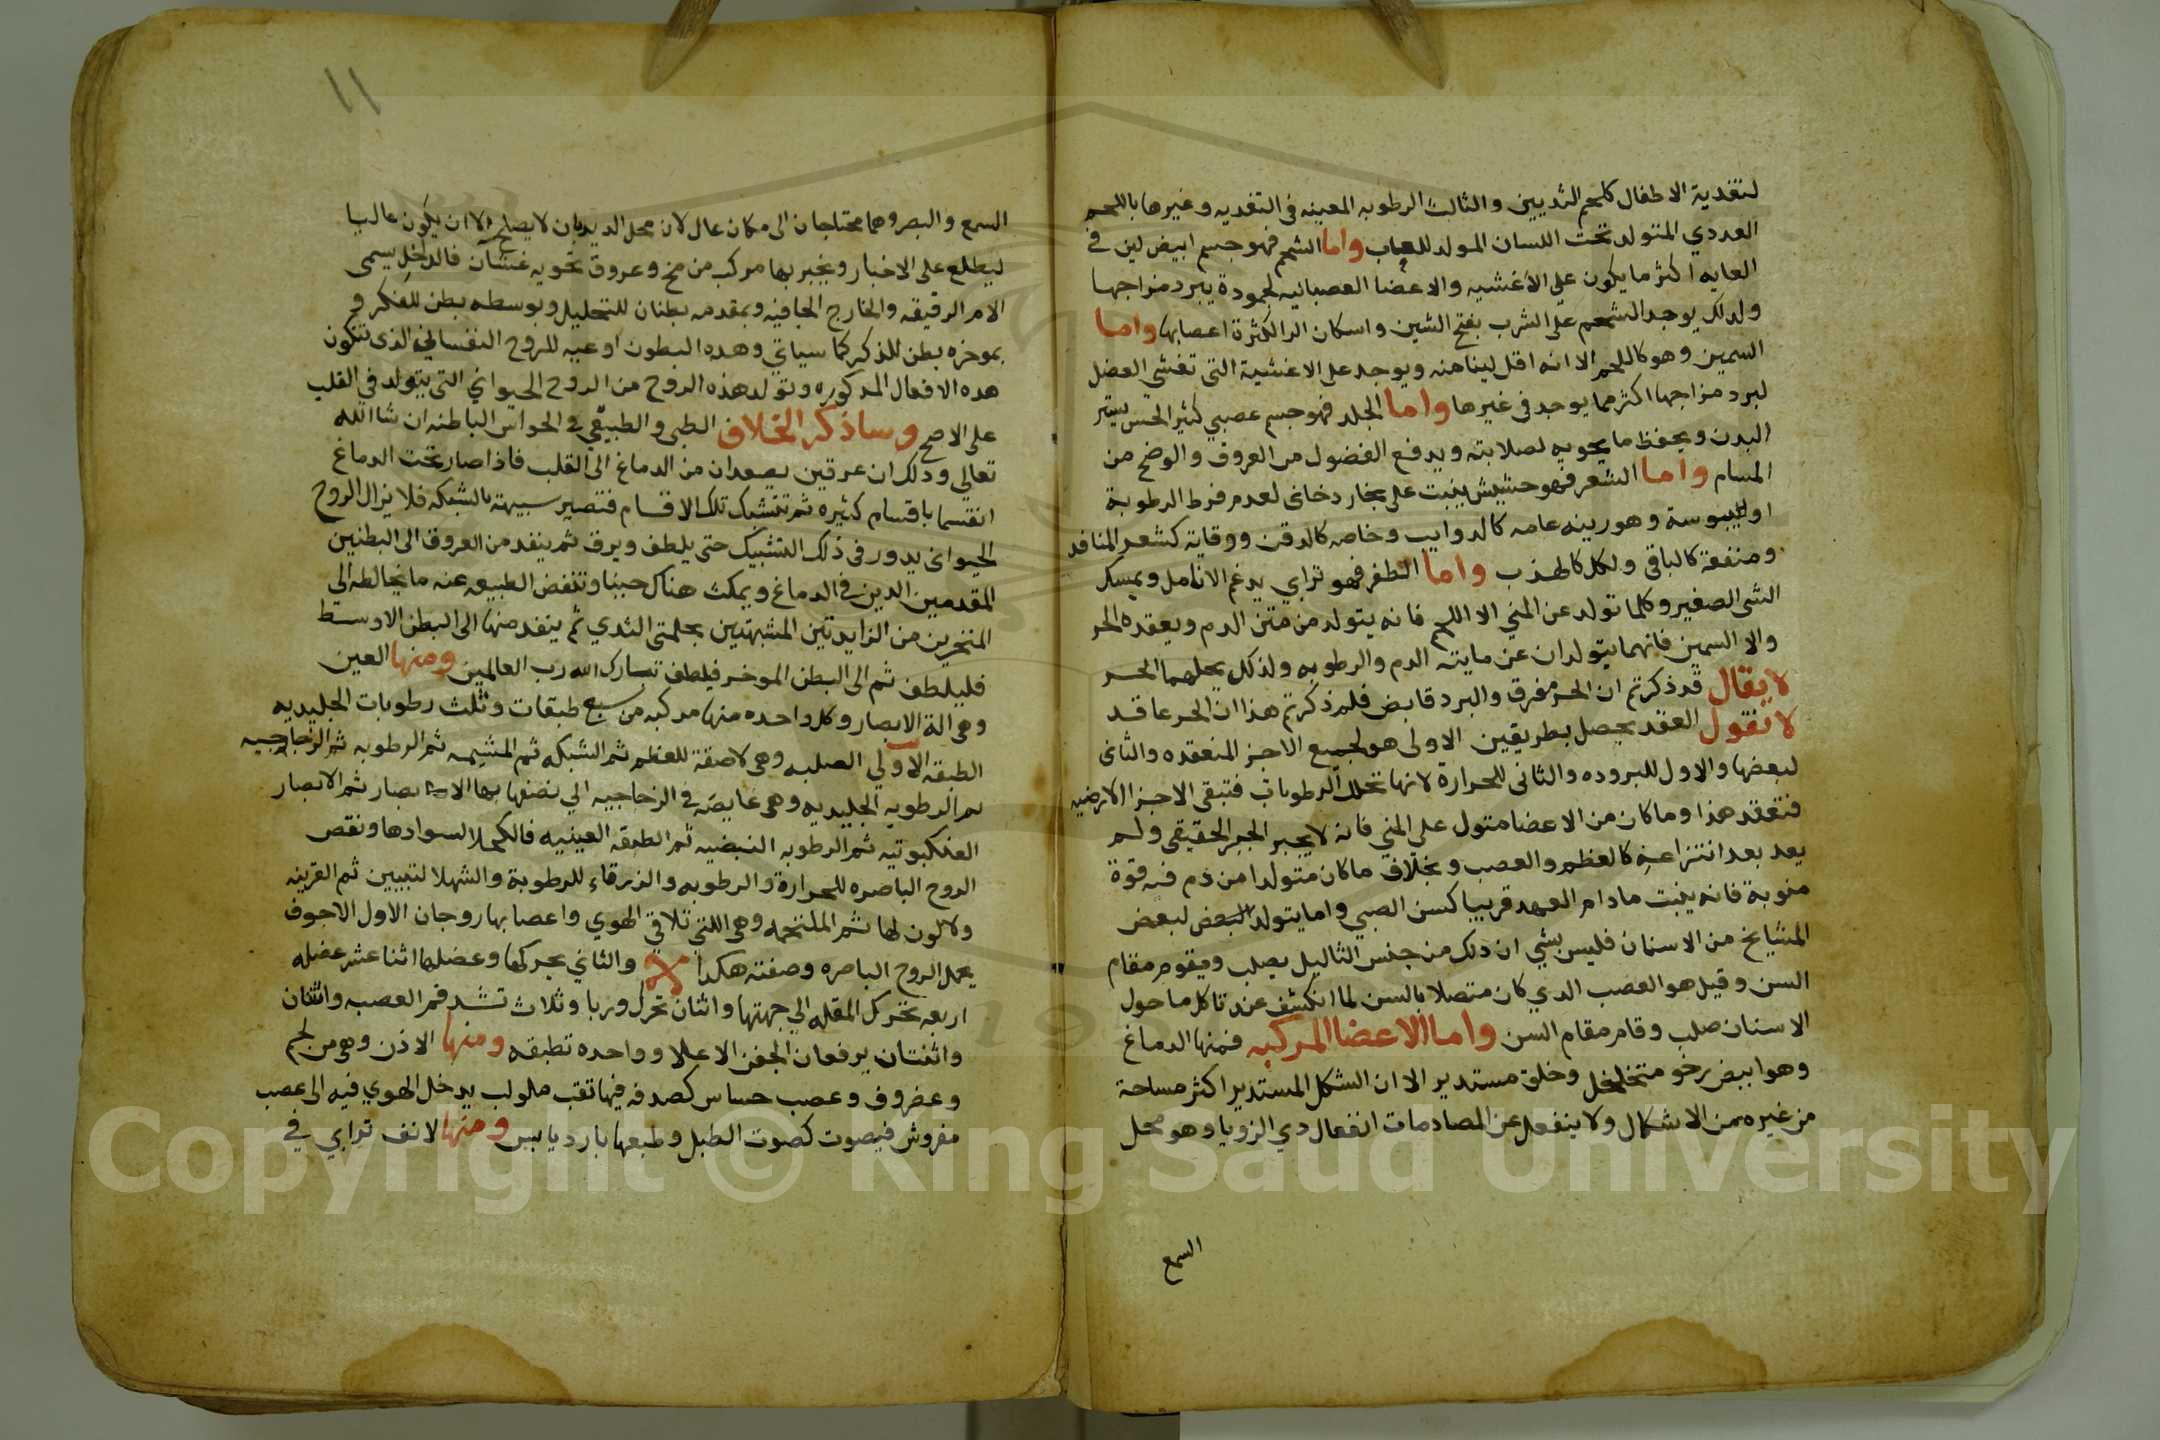 لتغدية الاطفال كلحم الثديين والثالث الرطوبه المعينه فى التغديه وغيرها باللحم
العددي المتولد تحت اللسان المولد للعاب واما الشحم فهو جسم ابيض لين في
الغايه اكثر ما يكون علي الأغشيه والاعضا العصبانيه لجمودة يبرد مزاجها
ولدلك يوجد الشحم على الثرب بفتح الشين واسكان الرا لكثرة اعصابها واما
السمين وهو كاللحم الا انه اقل لينا منه ويوجد على الاغشية التى تغشي العضل
لبرد مزاجها اكثر مما يوجد فى غيرها واما الجلد فهو جسم عصبي كثير الحس يستر
البدن ويحفظ ما يحويه لصلابته ويدفع الفضول من العروق والوضح من
المسام واما الشعر فهو حشيش ينبت على بخار دخانى لعدم فرط الرطوبة
او اليبوسة وهو زينه عامه كالدوايب وخاصه كالدقن ووقاية كشعر المنافد
ومنفعة كالباقى ولكل كالهذب واما الظفر فهو ترابي يدغم الانامل ويمسك
الشى الصغير وكلما تولد عن المني الا اللحم فانه يتولد من متن الدم ويعقده الحر
والا السمين فانهما يتولدان عن مايته الدم والرطوبه ولذلك يحلهما الحر
لا يقال قد ذكرتم ان الحر مفرق والبرد قابض فلم ذكرتم هذا ان الحر عاقد
لا نقول العقد يحصل بطريقين الاولى هو لجميع الاجز المنعقده والثانى
لبعضها والاول للبروده والثانى للحرارة لانها تحلل الرطوبات فتبقى الاجزا الارضيه
فتعقد هذا وما كان من الاعضا متول علي المني فانه لا يجبر الجبر الحقيقى ولم
يعد بعد انتزاعه كالعظم والعصب وبخلاف ما كان متولدا من دم فيه قوة
منوية فانه ينبت مادام العهد قريبا كسن الصبي واما يتولد البعض لبعض
المشايخ من الاسنان فليس بشي ان دلك من جنس الثاليل يصلب ويقوم مقام
السن وقيل هو العصب الدي كان متصلا بالسن لما انكشف عند تاكل ما حول
الاسنان صلب وقام مقام السن واما الاعضا المركبه فمنها الدماغ
وهو ابيض رخو متخلخل وخلق مستدير الا ان الشكل المستدير اكثر مساحة
من غيره من الاشكال ولا ينفعل عن المصادمات انفعال دي الزوايا وهو محل
السمع
١١
السمع والبصر وهما محتاجان الى مكان عال لان محل الديدبان لا يصلح الا ان يكون عاليا
ليطلع على الاخبار ويخبر بها مركب من مخ وعروق تحويه غشآن فالداخل يسمى
الام الرقيقه والخارج الجافيه وبمقدمه بطنان للتحليل وبوسطه بطن للفكر و
بموخره بطن للذكر كما سياتي وهده البطون اوعيه للروح النفساني الدى تتكون
هده الافعال المدكوره وتولد هذه الروح من الروح الحيواني التى يتولد في القلب
على الاصح وساذكر الخلاف الطبى والطبيعي فى الحواس الباطنه ان شا الله
تعالي ودلك ان عرقين يصعدان من الدماغ الى القلب فاذا صار تحت الدماغ
انقسما باقسام كثيره ثم تتشبك تلك الاقسام فتصير سبيهة بالشبكه فلا يزال الروح
الحيوانى يدور فى ذلك التشبيك حتى يلطف ويرق ثم ينفد من العروق الى البطنين
المقدمين الدين فى الدماغ ويمكث هناك حينا وتنفض الطبيعه عنه ما يخالطه الى
المنخرين من الزايدتين المشبهتين بحلمتى الثدي ثم ينفد منها الى البطن الاوسط
فليلطف ثم الى البطن الموخر فيلطف تبارك الله رب العالمين ومنها العين
وهى الة الابصار وكل واحده منها مركبه من سبع طبقات وثلث رطوبات الجليديه
الطبقه الاولي الصلبه وهى لاصقة للعظم ثم الشبكه ثم المشيمه ثم الرطوبه الزجاجيه
ثم الرطوبه الجليديه وهى غايصة فى الزجاجيه الي نصفها بها الابصار ثم الابصار
العنكبوتيه ثم الرطوبه البيضيه ثم الطبقه العينيه فالكحلا لسوادها ونقص
الروح الباصره للحرارة والرطوبه والزرقاء للرطوبة والشهلا لتبيين ثم القرنيه
ولا لون لها ثم الملتحمه وهى اللتي تلاقي الهوي واعصابها زوجان الاول الاجوف
يحمل الروح الباصره وصفته هكدا والثاني يحركها وعضلها اثنا عشر عضله
اربعه تحرك المقله الي جهتها واثنان تحرك وربا وثلاث تشد فم العصبه واثنان
واثنتان يرفعان الجفن الاعلا وواحده تطبقه ومنها الاذن وهى من لحم
وغضروف وعصب حساس كصدفه فيها تقب ملولب يدخل الهوي فيه الى عصب
مفروش فيصوت كصوت الطبل وطبعها بارد يابس ومنها الانف ترابي فى
Copyright © King Saud University